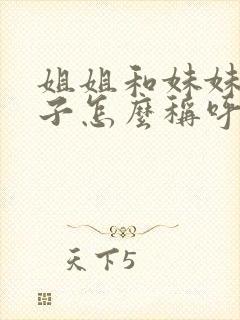 姐姐和妹妹
子怎麼稱呼
天下5